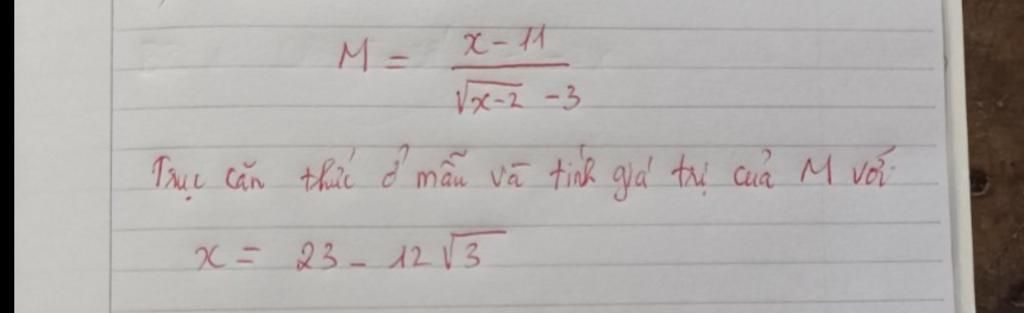 M = \frac{x - 11}{\sqrt{x-2} - 3}
Trục căn thức ở mẫu và tính giá trị của M với
x = 23 - 12\sqrt{3}